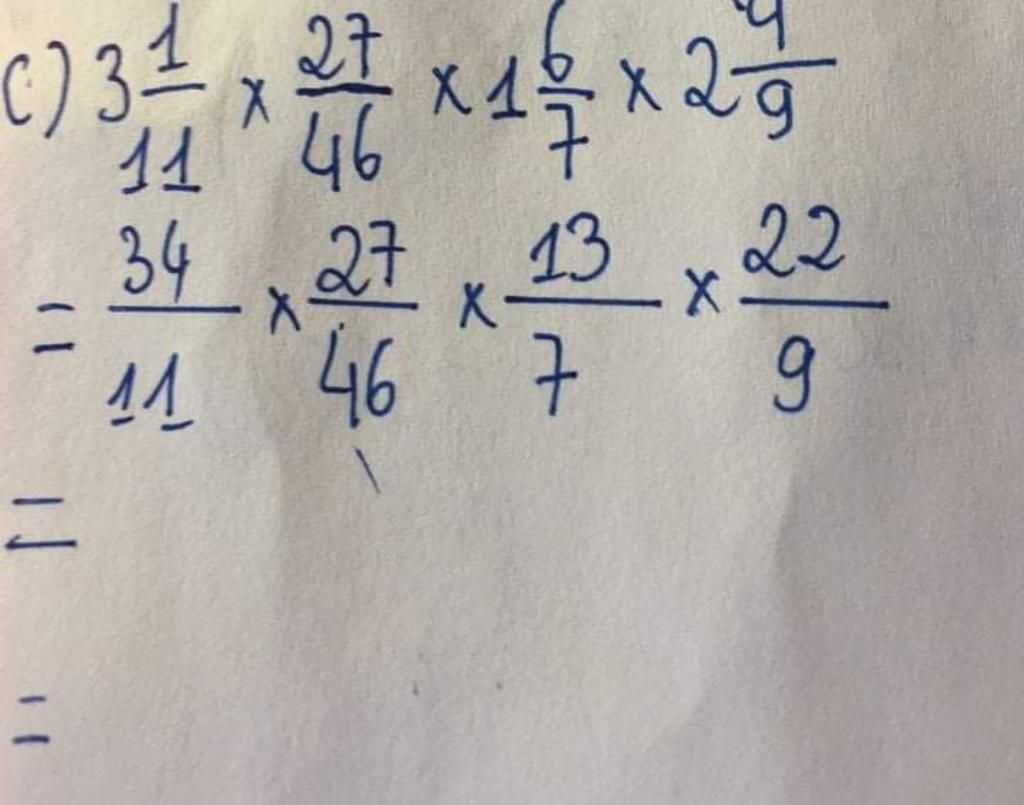 c) 3 1/11 × 27/46 × 1 6/7 × 2 4/9
= 34/11 × 27/46 × 13/7 × 22/9
=
=